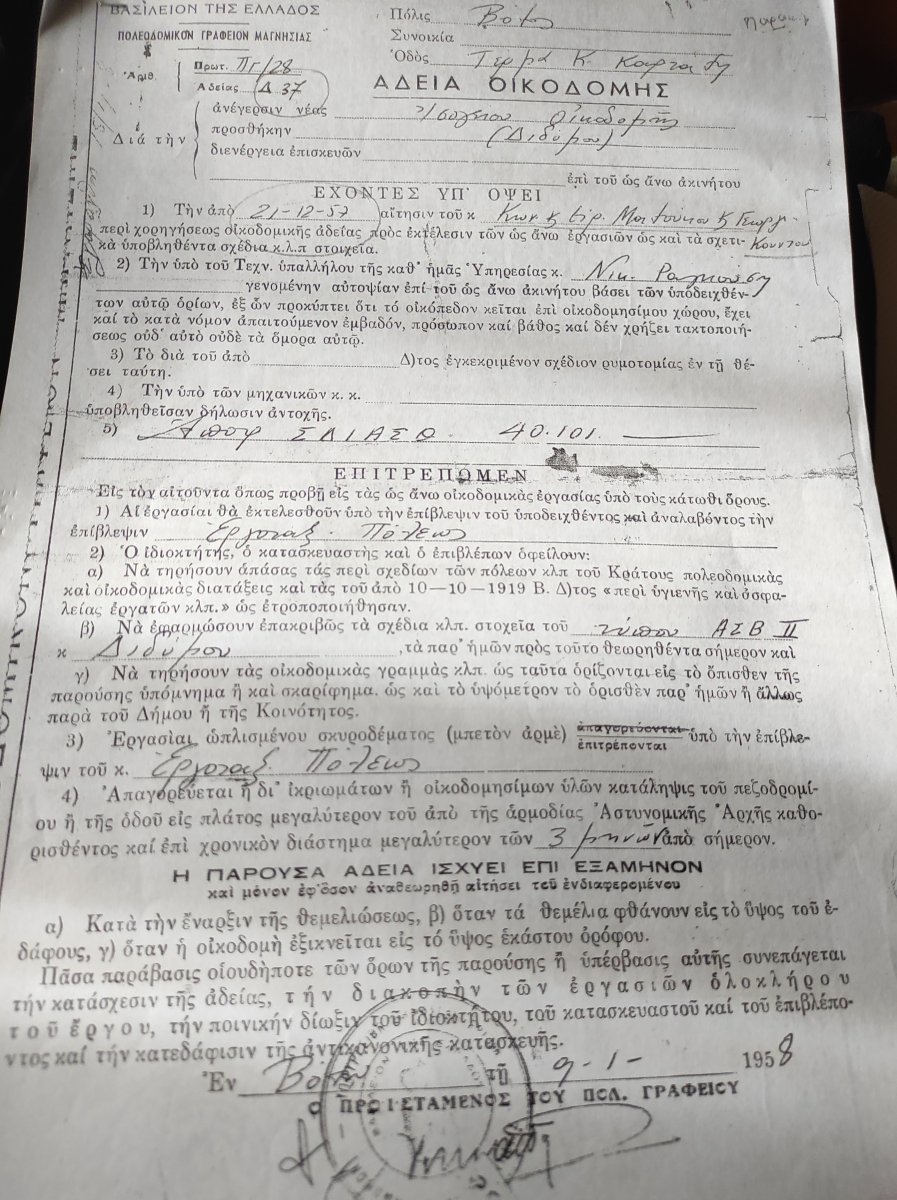 ΒΑΣΙΛΕΙΟΝ ΤΗΣ ΕΛΛΑΔΟΣ
ΠΟΛΕΟΔΟΜΙΚΟΝ ΓΡΑΦΕΙΟΝ ΜΑΓΝΗΣΙΑΣ
Ἀριθ. Πρωτ. Πγ/28
Ἀδείας Δ 37
Πόλις Βόλος
Συνοικία
Ὁδὸς Τέρμα Κ.
ΑΔΕΙΑ ΟΙΚΟΔΟΜΗΣ
Διὰ τὴν
ἀνέγερσιν νέας Ἰσογείου Οἰκοδομῆς
προσθήκην (Διδύμου)
διενέργεια ἐπισκευῶν
ἐπὶ τοῦ ὡς ἄνω ἀκινήτου
ΕΧΟΝΤΕΣ ΥΠ' ΟΨΕΙ
1) Τὴν ἀπὸ 21-12-57 αἴτησιν τοῦ κ
περὶ χορηγήσεως οἰκοδομικῆς ἀδείας πρὸς ἐκτέλεσιν τῶν ὡς ἄνω ἐργασιῶν ὡς καὶ τὰ σχετι-
κὰ ὑποβληθέντα σχέδια κ.λ.π στοιχεῖα.
2) Τὴν ὑπὸ τοῦ Τεχν. ὑπαλλήλου τῆς καθ' ἡμᾶς Ὑπηρεσίας κ. Νικ.
γενομένην αὐτοψίαν ἐπί τοῦ ὡς ἄνω ἀκινήτου βάσει τῶν ὑποδειχθέν-
των αὐτῷ ὁρίων, ἐξ ὧν προκύπτει ὅτι τό οἰκόπεδον κεῖται ἐπὶ οἰκοδομησίμου χώρου, ἔχει
καί τὸ κατὰ νόμον ἀπαιτούμενον ἐμβαδόν, πρόσωπον καί βάθος καί δέν χρήζει τακτοποιή-
σεως οὐδ' αὐτὸ οὐδὲ τὰ ὅμορα αὐτῷ.
3) Τὸ διὰ τοῦ ἀπὸ Δ)τος ἐγκεκριμένον σχέδιον ρυμοτομίας ἐν τῇ θέ-
σει ταύτη.
4) Τὴν ὑπὸ τῶν μηχανικῶν κ. κ.
ὑποβληθεῖσαν δήλωσιν ἀντοχῆς.
5) 40.101
ΕΠΙΤΡΕΠΟΜΕΝ
Εἰς τὸν αἰτοῦντα ὅπως προβῇ εἰς τὰς ὡς ἄνω οἰκοδομικὰς ἐργασίας ὑπὸ τοὺς κάτωθι ὅρους.
1) Αἱ ἐργασίαι θὰ ἐκτελεσθοῦν ὑπὸ τὴν ἐπίβλεψιν τοῦ ὑποδειχθέντος καὶ ἀναλαβόντος τὴν
ἐπίβλεψιν Πόλεως
2) Ὁ ἰδιοκτήτης, ὁ κατασκευαστὴς καὶ ὁ ἐπιβλέπων ὀφείλουν:
α) Νὰ τηρήσουν ἁπάσας τάς περὶ σχεδίων τῶν πόλεων κλπ τοῦ Κράτους πολεοδομικὰς
καὶ οἰκοδομικὰς διατάξεις καὶ τὰς τοῦ ἀπὸ 10—10—1919 Β. Δ)τος «περὶ ὑγιενῆς καὶ ἀσφα-
λείας ἐργατῶν κλπ.» ὡς ἐτροποποιήθησαν.
β) Νὰ ἐφαρμώσουν ἐπακριβῶς τὰ σχέδια κλπ. στοιχεῖα τοῦ τύπου ΑΣΒ ΙΙ
κ Διδύμου ,τὰ παρ' ἡμῶν πρὸς τοῦτο θεωρηθέντα σήμερον καὶ
γ) Νὰ τηρήσουν τὰς οἰκοδομικὰς γραμμὰς κλπ. ὡς ταῦτα ὁρίζονται εἰς τὸ ὄπισθεν τῆς
παρούσης ὑπόμνημα ἢ καὶ σκαρίφημα. ὡς καὶ τὸ ὑψόμετρον τὸ ὁρισθὲν παρ' ἡμῶν ἢ ἄλλως
παρὰ τοῦ Δήμου ἢ τῆς Κοινότητος.
3) Ἐργασίαι ὡπλισμένου σκυροδέματος (μπετὸν ἀρμὲ) ἀπαγορεύονται ὑπὸ τὴν ἐπίβλε-
ἐπιτρέπονται
ψιν τοῦ κ. Πόλεως
4) Ἀπαγορεύεται ἢ δι' ἰκριωμάτων ἢ οἰκοδομησίμων ὑλῶν κατάληψις τοῦ πεζοδρομί-
ου ἢ τῆς ὁδοῦ εἰς πλάτος μεγαλύτερον τοῦ ἀπὸ τῆς ἁρμοδίας Ἀστυνομικῆς Ἀρχῆς καθο-
ρισθέντος καί ἐπὶ χρονικὸν διάστημα μεγαλύτερον τῶν 3 μηνῶν ἀπὸ σήμερον.
Η ΠΑΡΟΥΣΑ ΑΔΕΙΑ ΙΣΧΥΕΙ ΕΠΙ ΕΞΑΜΗΝΟΝ
καὶ μόνον ἐφ' ὅσον ἀναθεωρηθῇ αἰτήσει τοῦ ἐνδιαφερομένου
α) Κατὰ τὴν ἔναρξιν τῆς θεμελιώσεως, β) ὅταν τά θεμέλια φθάνουν εἰς τὸ ὕψος τοῦ ἐ-
δάφους, γ) ὅταν ἡ οἰκοδομὴ ἐξικνεῖται εἰς τό ὕψος ἑκάστου ὀρόφου.
Πᾶσα παράβασις οἱουδήποτε τῶν ὅρων τῆς παρούσης ἢ ὑπέρβασις αὐτῆς συνεπάγεται
τήν κατάσχεσιν τῆς ἀδείας, τήν διακοπὴν τῶν ἐργασιῶν ὁλοκλήρου
τοῦ ἔργου, τήν ποινικήν δίωξιν τοῦ ἰδιοκτήτου, τοῦ κατασκευαστοῦ καί τοῦ ἐπιβλέπο-
ντος καί τήν κατεδάφισιν τῆς ἀντικανονικῆς κατασκευῆς.
Ἐν Βόλῳ τῇ 9-1- 1958
Ο ΠΡΟΪΣΤΑΜΕΝΟΣ ΤΟΥ ΠΟΛ. ΓΡΑΦΕΙΟΥ